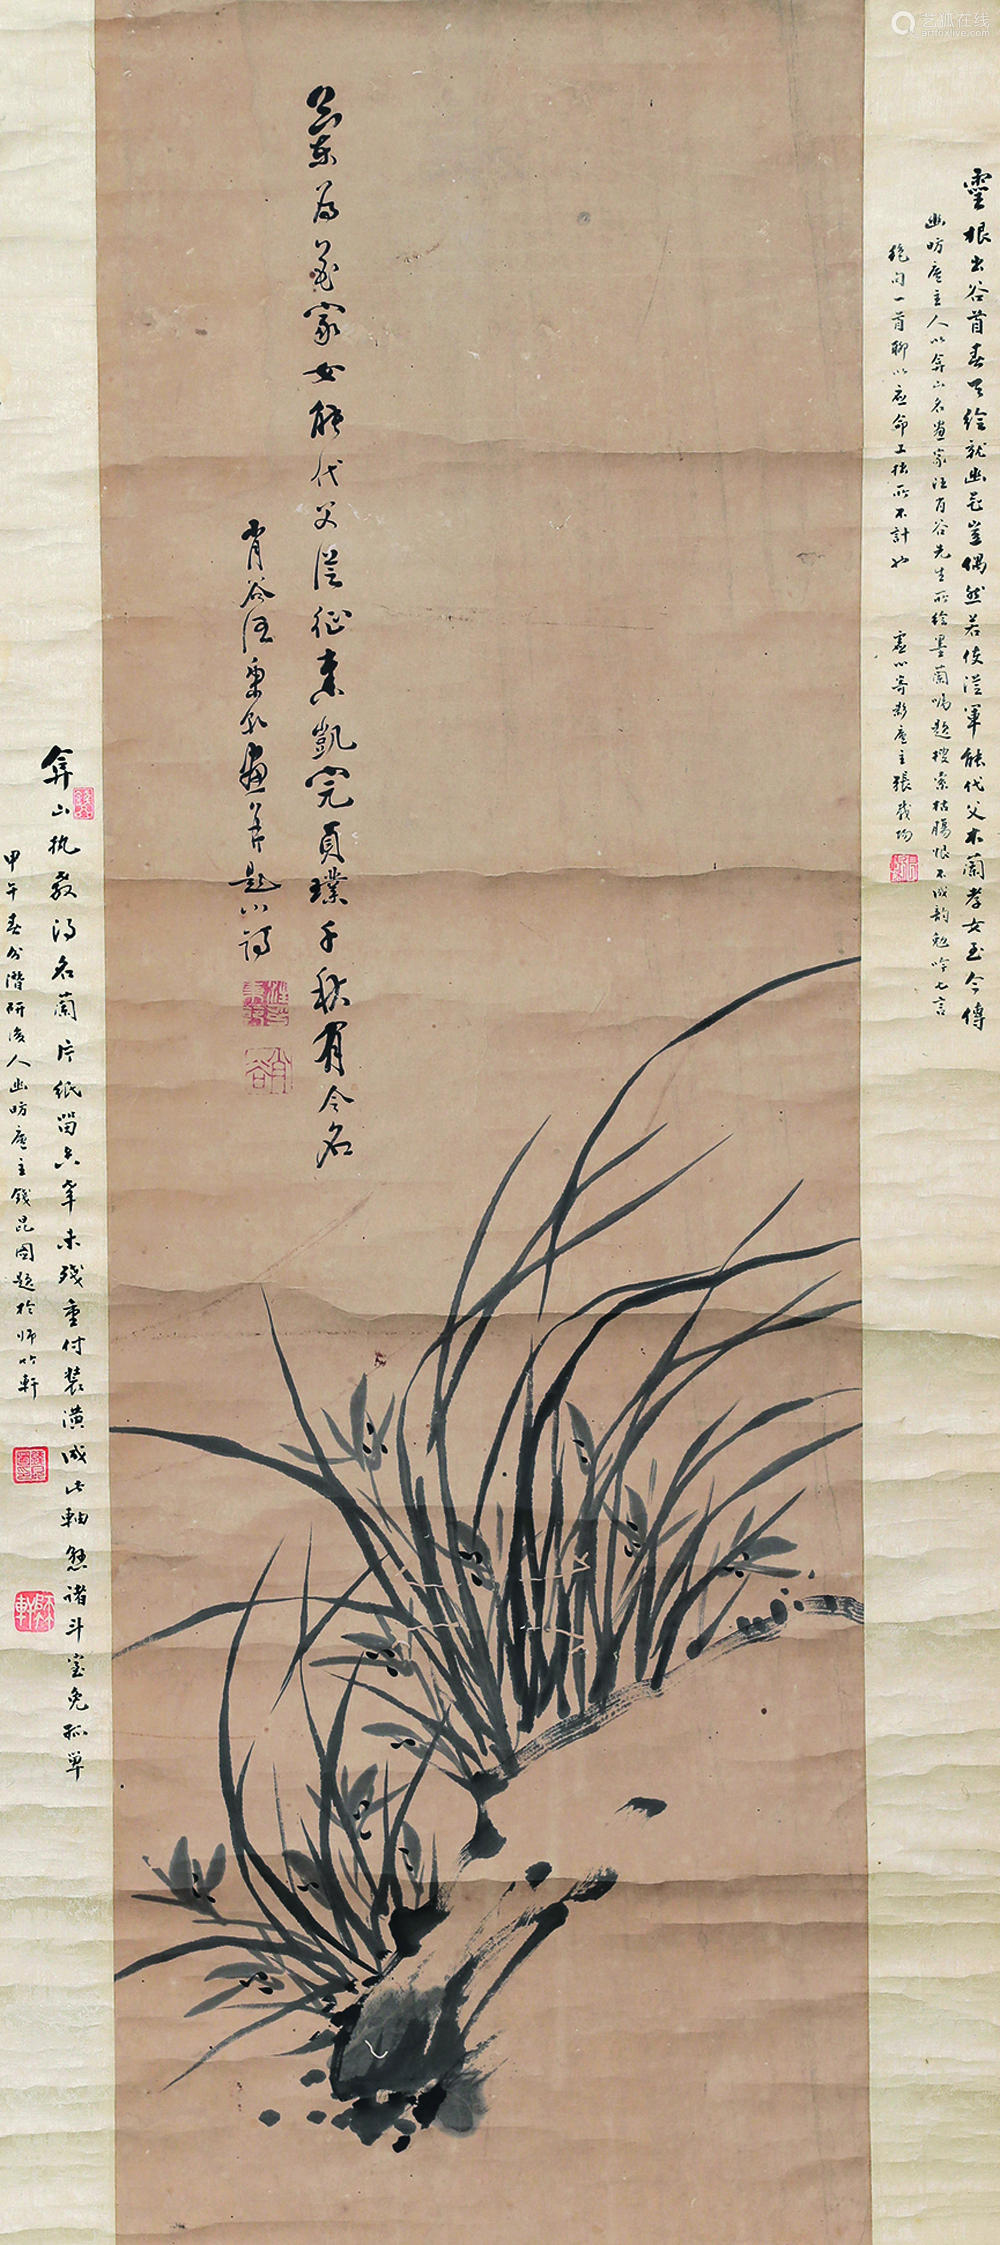 艺狐在线
artfoxlive.com
靈根出谷首春天繪就幽花豈偶然若使從軍能代父木蘭孝女至今傳
幽昉廬主人以弇山名畫家汪肖谷先生所繪墨蘭囑題搜索枯腸恨不成韵勉吟七言
絶句一首聊以應命工拙所不計也
虛心寄影廬主張
為花家女能代父從征奏凱完貞璞千秋有令名
肖谷汪秉畫并題小詩
肖谷
弇山執教得名蘭片紙留六年未殘重付裝潢成此軸懸諸斗室免孤單
甲午春分潛研後人幽昉廬主錢昆國題於師竹軒